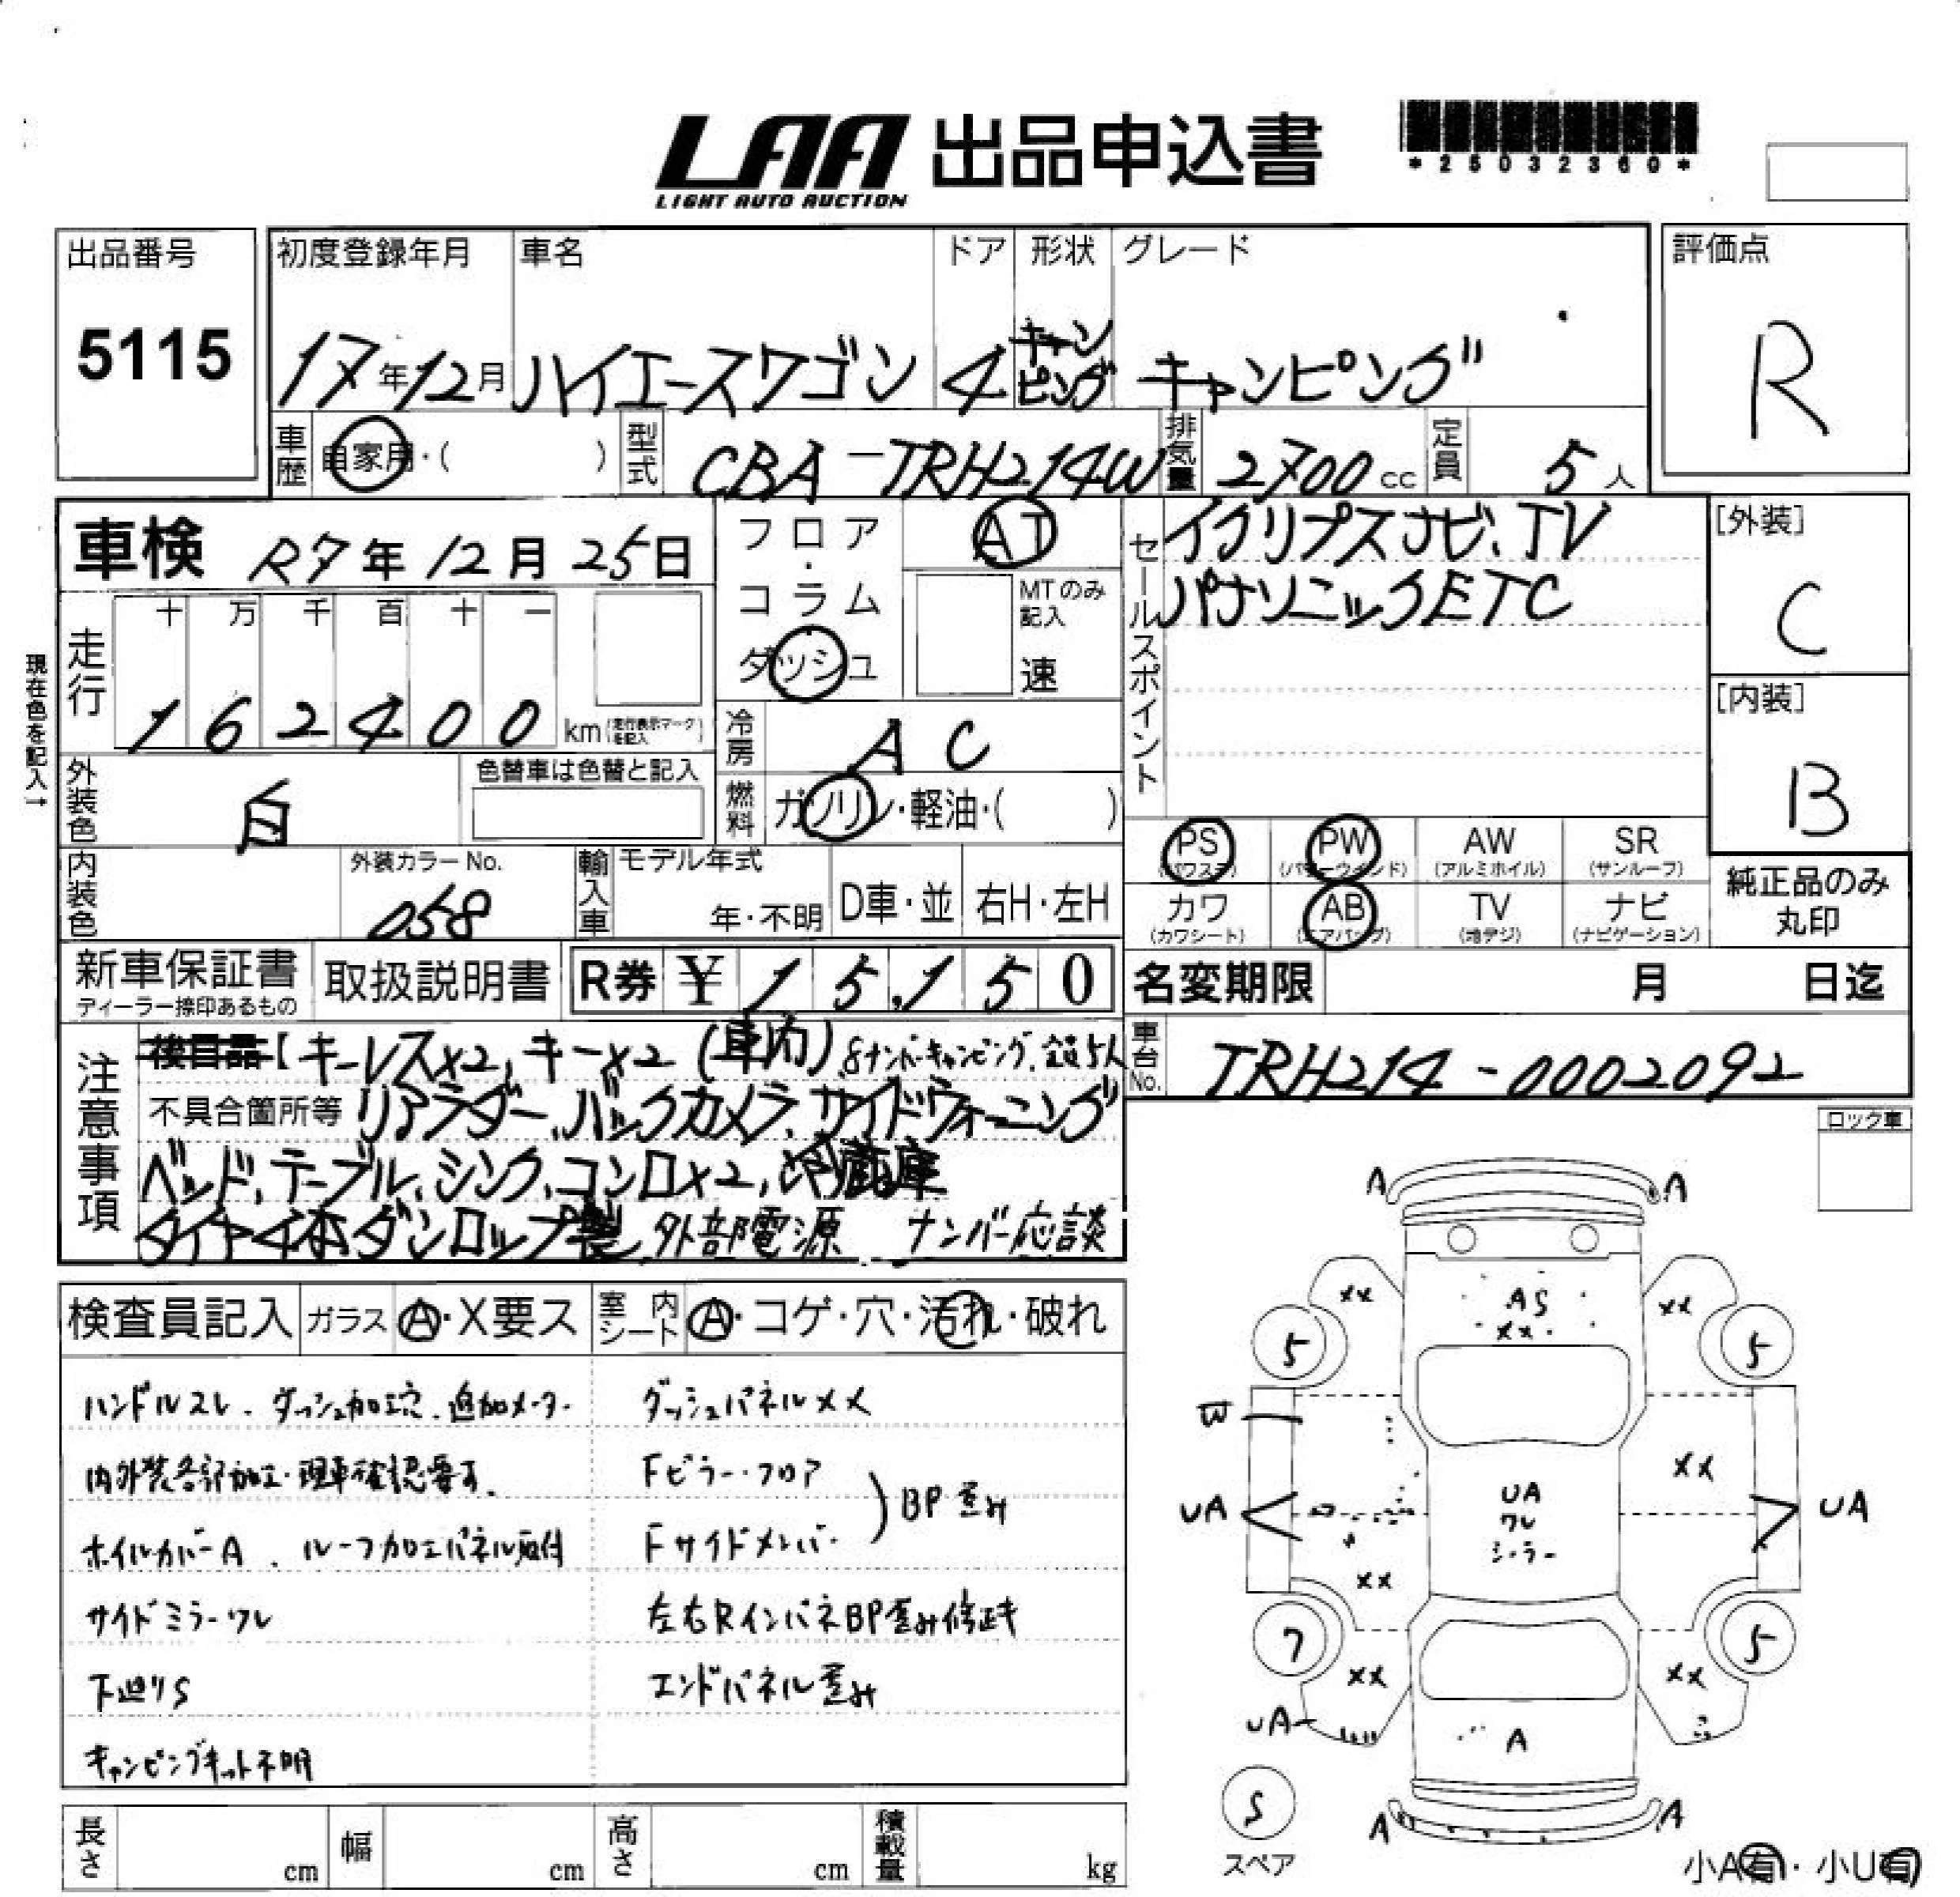 LAA 出品申込書
LIGHT AUTO AUCTION
*25032360*
出品番号
5115
初度登録年月 車名 ドア 形状 グレード
17年12月 ハイエースワゴン 4 キャンピング キャンピング
評価点
R
車歴 自家用・( ) 型式 CBA-TRH214W 排気量 2700cc 定員 5人
車検 R7年12月25日
フロア・コラム ダッシュ
AT
MTのみ記入 速
セールスポイント
イクリプスナビ、TV
パナソニックETC
[外装]
C
[内装]
B
現在色を記入→
走行 十 万 千 百 十 一
162400 km (走行表示マークを記入)
冷房 AC
外装色 白 色替車は色替と記入
燃料 ガソリン・軽油・( )
内装色 外装カラーNo. 058
輸入車 モデル年式 年・不明 D車・並 右H・左H
PS (パワステ) PW (パワーウインド) AW (アルミホイル) SR (サンルーフ)
カワ (カワシート) AB (エアバッグ) TV (地デジ) ナビ (ナビゲーション)
純正品のみ丸印
新車保証書 ディーラー捺印あるもの 取扱説明書 R券 ¥15,150
名変期限 月 日迄
車台No. TRH214-0002092
注意事項
後日品【キーレス×2, キー×2 (車内) 8ナンバーキャンピング、定員5人
不具合箇所等 リアラダー、バックカメラ、サイドウォーニング
ベッド、テーブル、シンク、コンロ×2, 冷蔵庫
タイヤ4本ダンロップ製 外部電源 ナンバー応談
ロック車
検査員記入 ガラス A・X要ス 室内シート A・コゲ・穴・汚れ・破れ
ハンドルスレ、ダッシュ加工穴、追加メーター
ダッシュパネルメメ
内外装各部加工・現車確認要す。
Fピラー・フロア
Fサイドメンバー
)BP歪み
ホイルカバーA、ルーフ加工パネル取付
サイドミラーワレ
左右RインパネBP歪み修正キ
下廻りS
エンドパネル歪み
キャンピングキット不明
A A
XX AS XX
XX
5 5
W
XX
UA UA UA
ワレ
シーラー
XX
7 5
XX XX
UA
A
S
スペア
A A
長さ cm 幅 cm 高さ cm 積載量 kg
小A有・小U有